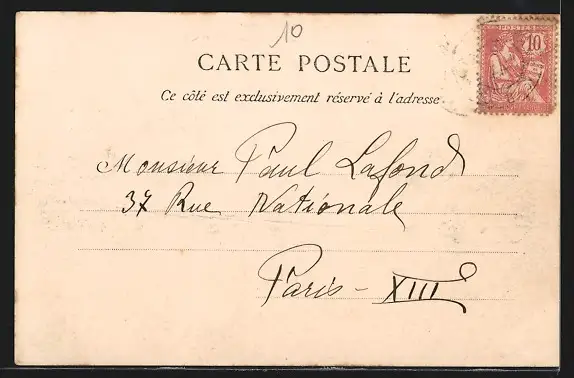 10
POSTES
10
CARTE POSTALE
Ce côté est exclusivement réservé à l'adresse
Monsieur Paul Lafond
37 Rue Nationale
Paris - XIII